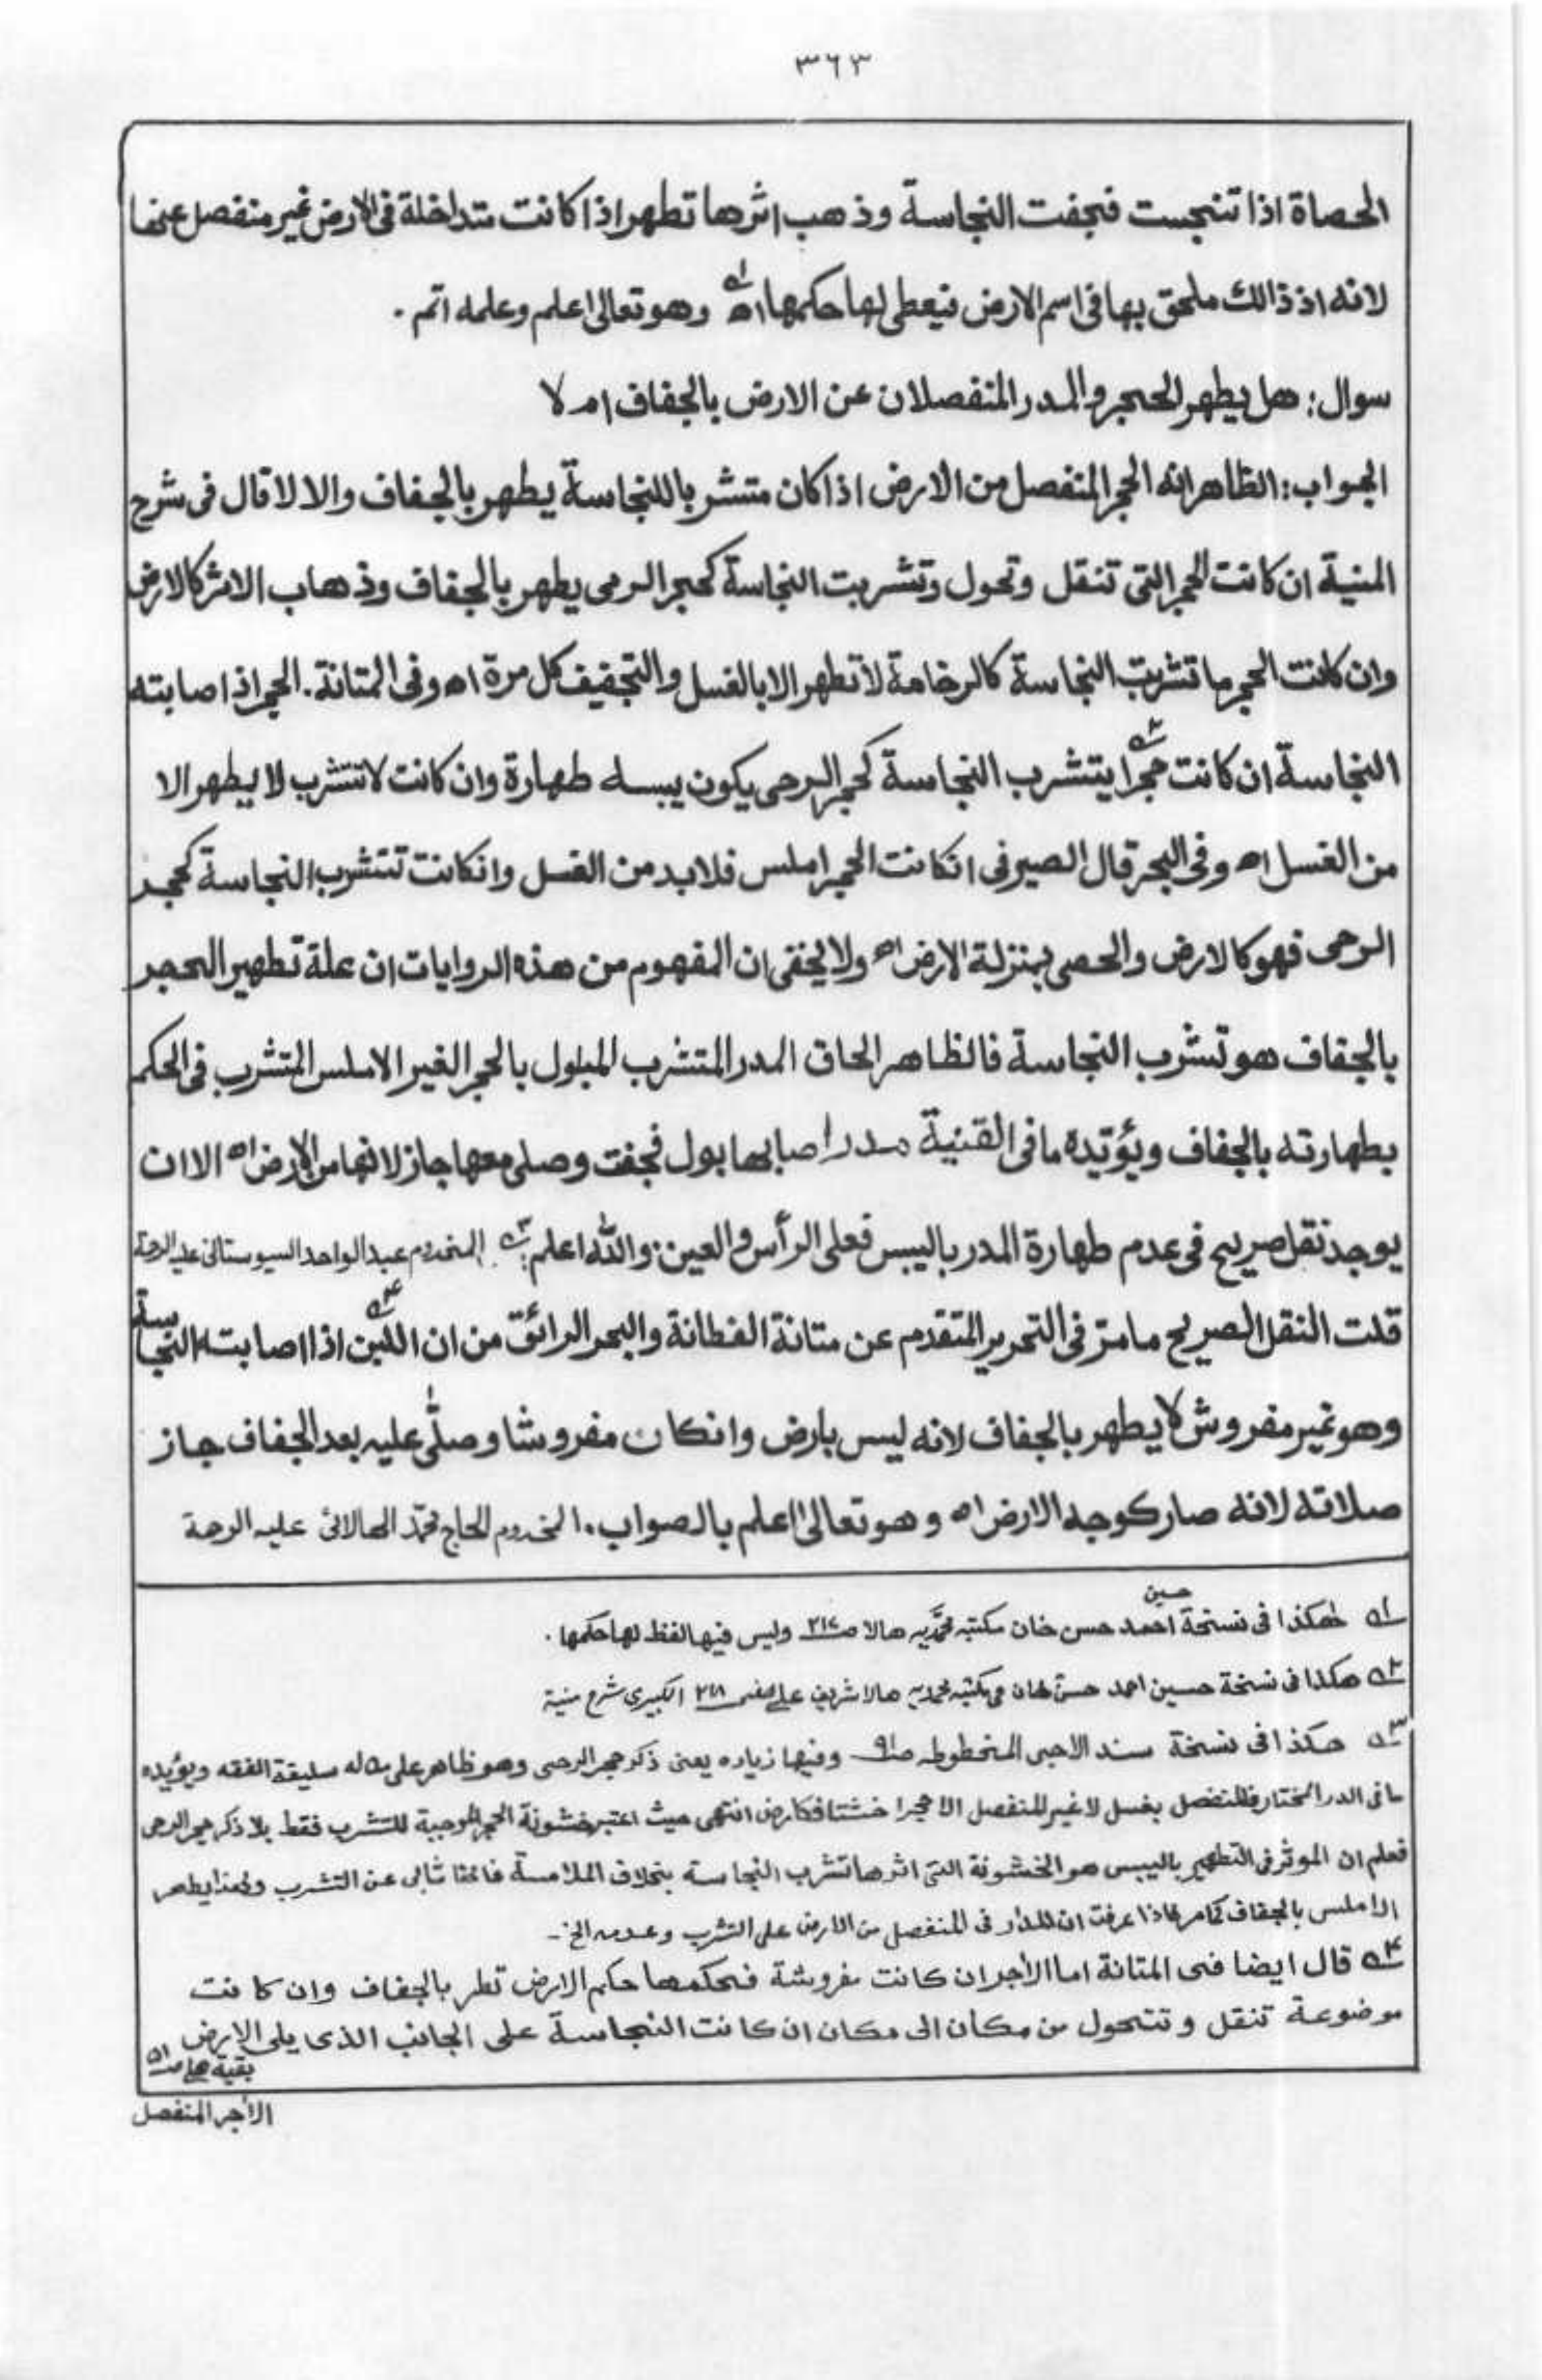 ٣٦٣
الحصاة اذا تنجست فجفت النجاسة وذهب اثرها تطهر اذا كانت متداخلة فى الارض غير منفصل عنها
لانه اذ ذالك ملحق بها فى اسم الارض فيعطى لها حكمها اه ١ه وهو تعالى اعلم وعلمه اتم .
سوال: هل يطهر الحجر والمدر المنفصلان عن الارض بالجفاف ام لا
الجواب: الظاهر انه الحجر المنفصل من الارض اذا كان متشر باللنجاسة يطهر بالجفاف والا لا قال فى شرح
المنية ان كانت الحجر التى تنقل وتحول وتشربت النجاسة كحجر الرمى يطهر بالجفاف وذهاب الاثر كالارض
وان كانت الحجر ما تشربت النجاسة كالرخامة لا تطهر الا بالغسل والتجفيف كل مرة اه وفى المتانة . الحجر اذا صابته
النجاسة ان كانت حجرا ٢ه يتشرب النجاسة كحجر الرحى يكون يبسه طهارة وان كانت لا تتشرب لا يطهر الا
من الغسل اه وفى البحر قال الصيرفى انكانت الحجر املس فلابد من الغسل وانكانت تتشرب النجاسة كحجر
الرحى فهو كالارض والحصى بمنزلة الارض اه ولا يخفى ان المفهوم من هذه الروايات ان علة تطهير الحجر
بالجفاف هو تشرب النجاسة فالظاهر الحاق المدر المتشرب المبلول بالحجر الغير الاملس المتشرب فى الحكم
بطهارته بالجفاف ويؤتيده ما فى القنية مدر اصابها بول فجفت وصلى معها جاز لانها من الارض اه الا ان
يوجد نقل صريح فى عدم طهارة المدر باليبس فعلى الرأس والعين: والله اعلم ٣ه: المخدوم عبد الواحد السيوستانى عليه الرحمة
قلت النقل الصريح ما مرّ فى التحرير المتقدم عن متانة الفطانة والبحر الرائق من ان اللبن ٤ه اذا اصابته النجاسة
وهو غير مفروش لا يطهر بالجفاف لانه ليس بارض وانكان مفروشا وصلّى عليه بعد الجفاف جاز
صلاته لانه صار كوجه الارض اه وهو تعالى اعلم بالصواب . المخدوم الحاج محمّد الهالائى عليه الرحمة
١ه هكذا فى نسخة احمد حسين حسن خان مكتبه محمّديه هالا ص٢١٧ وليس فيها لفظ لها حكمها .
٢ه هكذا فى نسخة حسين احمد حسن خان مكتبه محمديه هالا شريف على الكبيرى شرح منية
٣ه هكذا فى نسخة سند الاجبى المخطوطه ص٩١ وفيها زياده يعنى ذكر حجر الرحى وهو ظاهر على من له سليقة الفقه ويؤيده
ما فى الدر المختار فالمنفصل يغسل لا غير المنفصل الا حجرا خشنا فكارض انتهى حيث اعتبر خشونة الحجر الموجبة للتشرب فقط بلا ذكر حجر الرحى
فعلم ان الموثر فى التطهير باليبس هو الخشونة التى اثرها تشرب النجاسة بخلاف الملامسة فانها تأبى عن التشرب ولهذا يطهر
الاملس بالجفاف كما مر فاذا عرفت ان المدار فى المنفصل من الارض على التشرب وعدمه الخ -
٤ه قال ايضا فى المتانة اما الأجر ان كانت مفروشة فحكمها حكم الارض تطر بالجفاف وان كانت
موضوعة تنقل وتتحول من مكان الى مكان ان كانت النجاسة على الجانب الذى يلى الارض
بقية
الأجر المنفصل